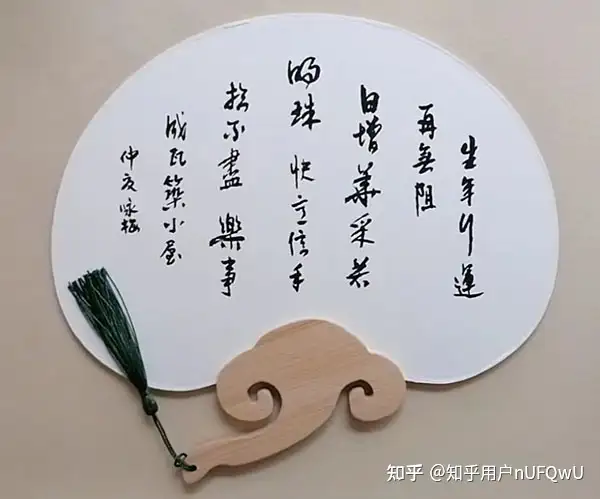 生年行運
再無阻
日增華采若
明珠 快意信手
拈不盡 樂事
成瓦築小屋
仲亥咏梅
知乎 @知乎用户nUFQwU